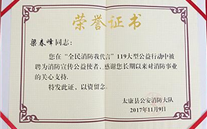 荣誉证书
梁春峰同志:
您在“全民消防我代言”119大型公益行动中被
聘为消防宣传公益使者，感谢您长期以来对消防事业
的关心支持。
特发此证，以资留念
太康县公安消防大队
2017年11月9日